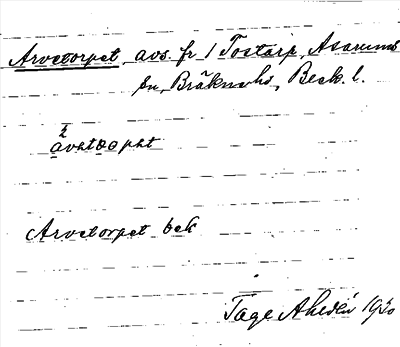 Arvetorpet avs. fr / Tostarp, Asarums
sn, Bräknehds, Beck. l.
Arvetorpet bek
Tage Ahldén 1930